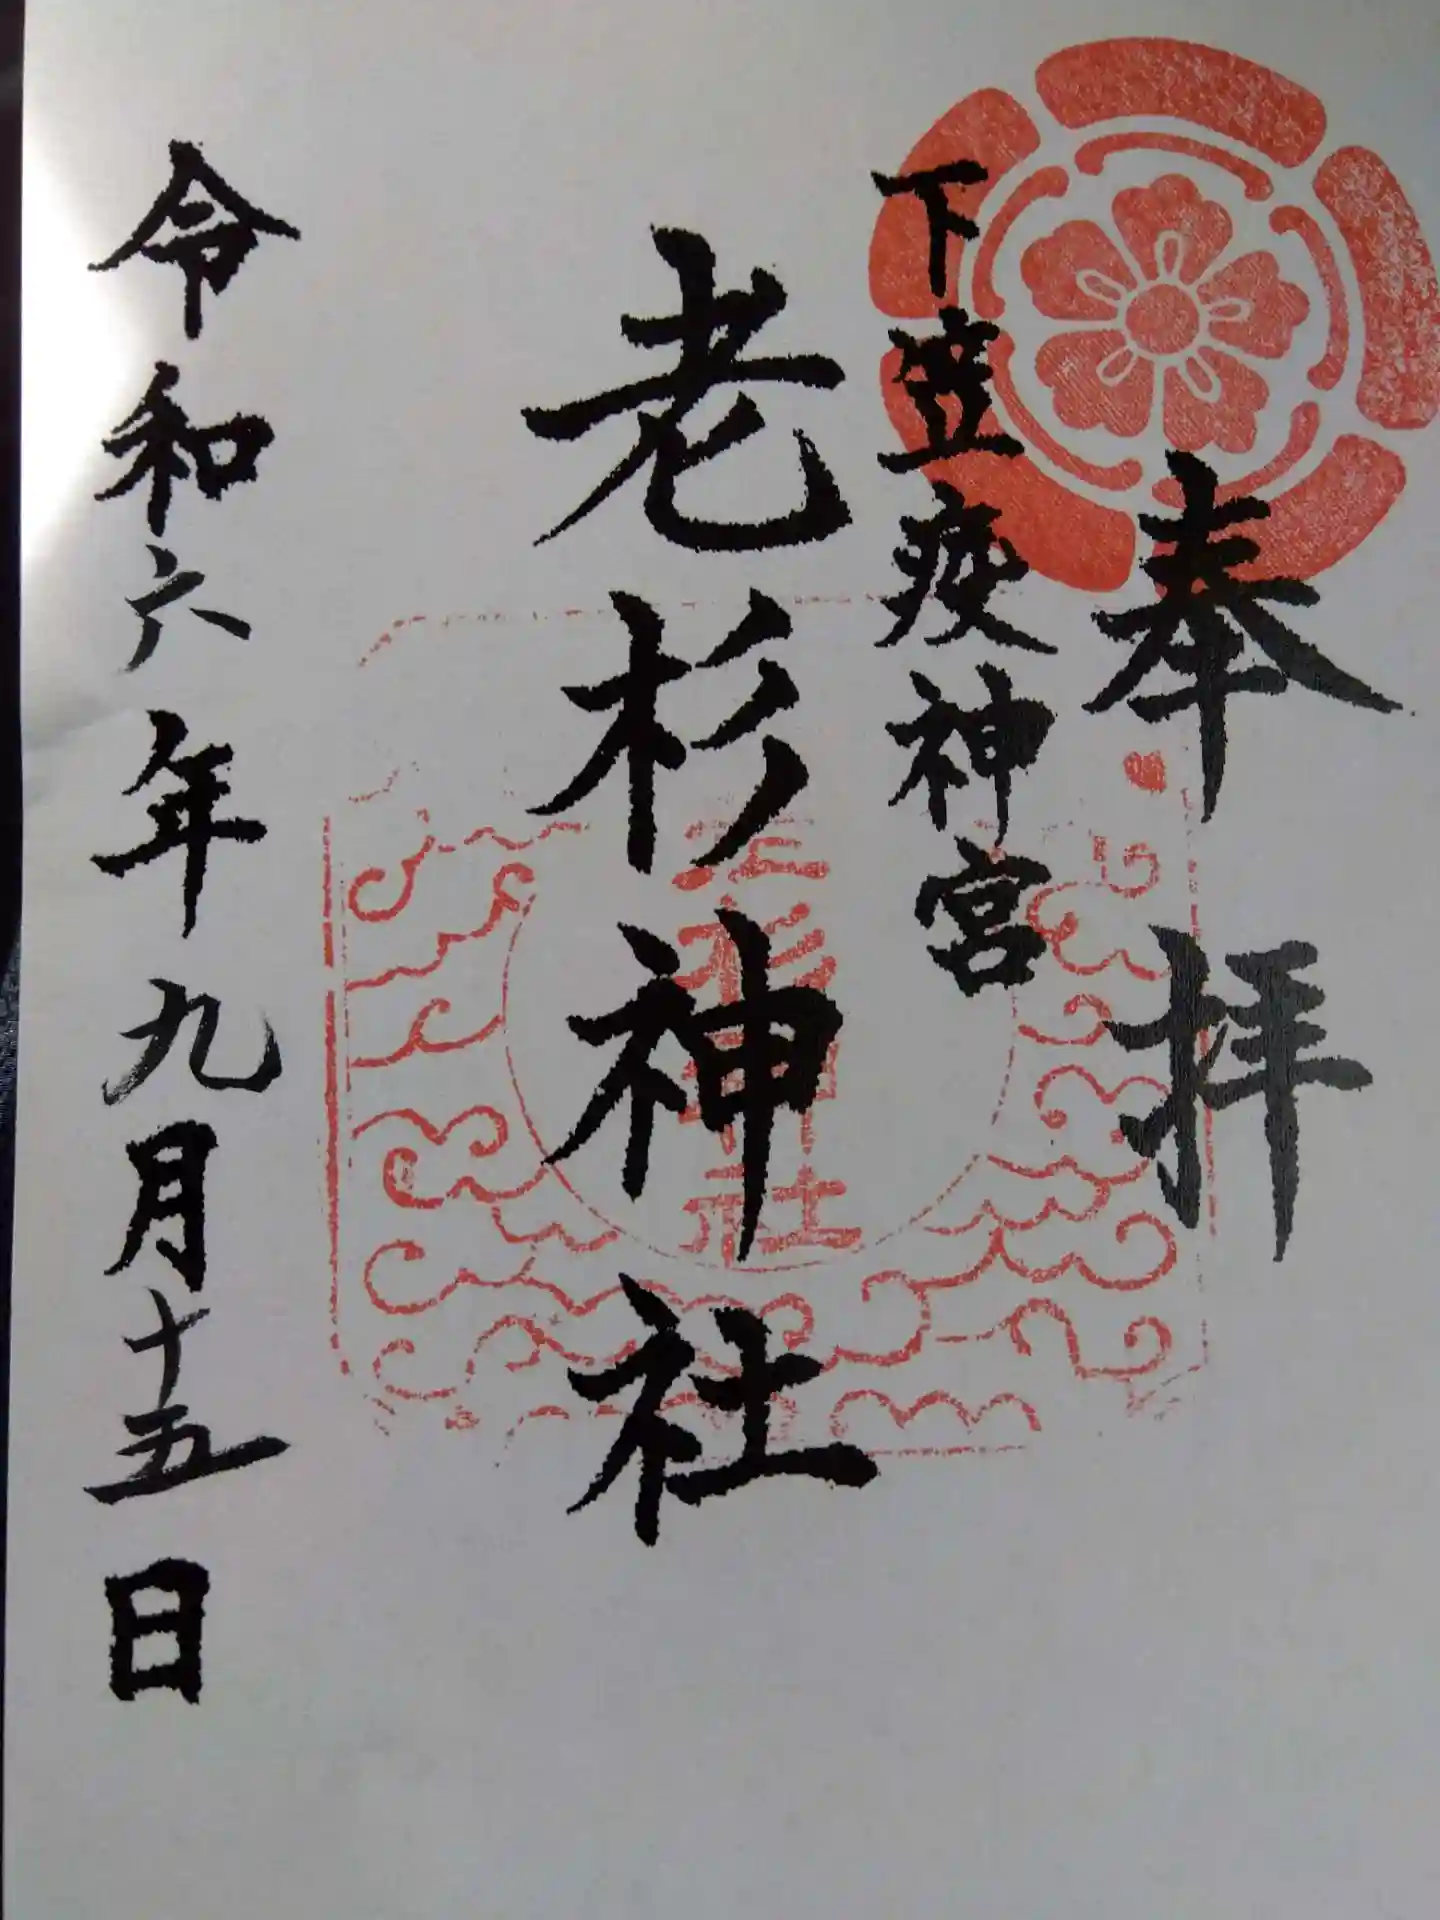 奉拝
下笠疫神宮
老杉神社
老杉神社
令和六年九月十五日